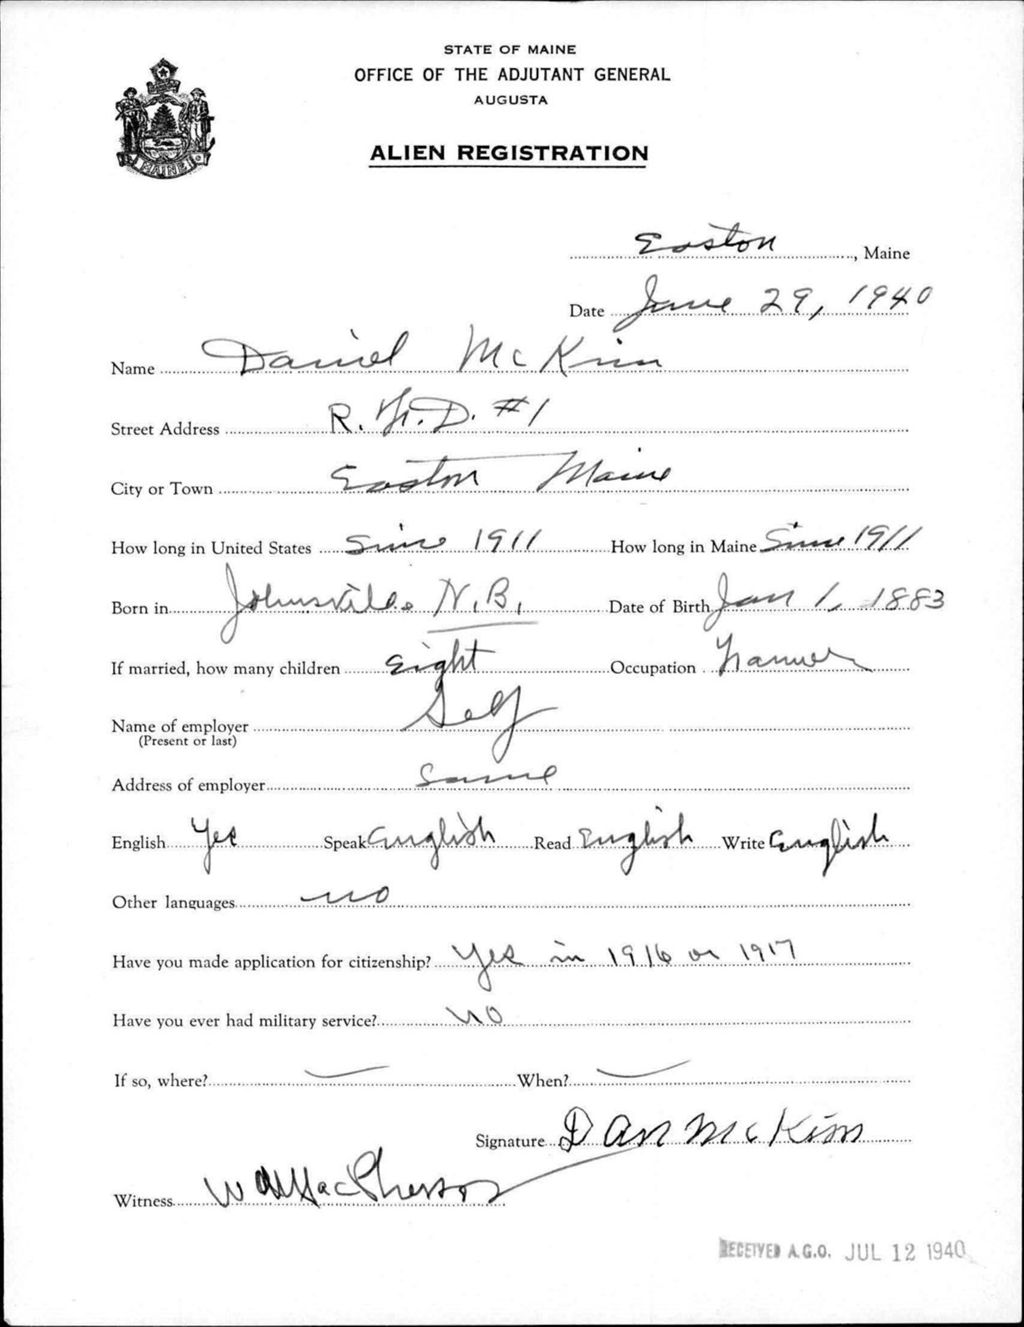 STATE OF MAINE
OFFICE OF THE ADJUTANT GENERAL
AUGUSTA
ALIEN REGISTRATION
MAINE
Easton, Maine
Date June 29, 1940
Name Daniel McKim
Street Address R.F.D. #1
City or Town Easton Maine
How long in United States Since 1911 How long in Maine Since 1911
Born in Johnsville N.B. Date of Birth Jan 1, 1883
If married, how many children Eight Occupation Farmer
Name of employer Self
(Present or last)
Address of employer Same
English Yes Speak English Read English Write English
Other languages no
Have you made application for citizenship? Yes in 1916 or 1917
Have you ever had military service? no
If so, where? — When? —
Signature Dan McKim
Witness MacPherson
RECEIVED A.G.O. JUL 12 1940